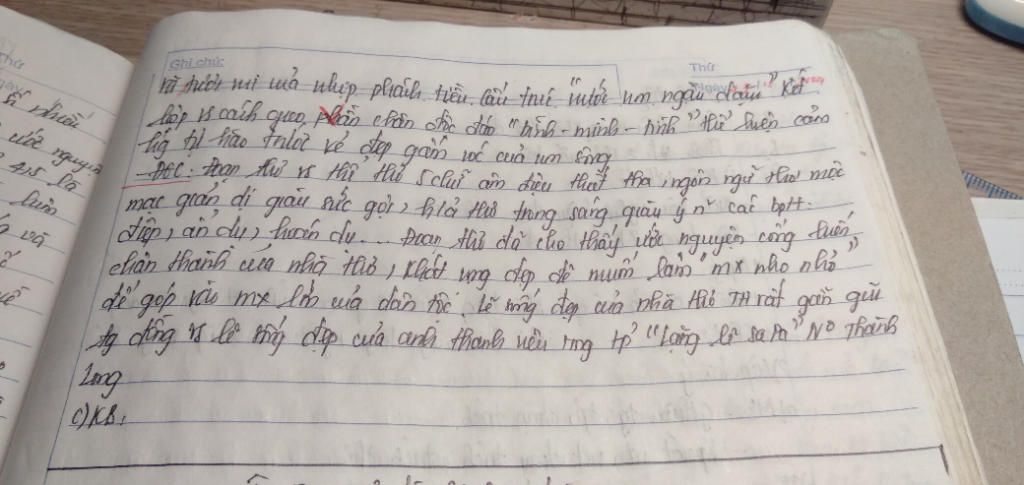 Ghi chú:
Thứ
Ngày
và tươi mà nhịp phách tiền. Cấu trúc "nước non ngàn dặm" kết
hợp vs cách gieo phần chân độc đáo "bình - minh - tình" thể hiện cảm
hg tự hào trước vẻ đẹp gấm vóc của um sông
- ĐGC: Đoạn thơ vs thể thơ 5 chữ âm điệu thiết tha, ngôn ngữ thơ mộc
mạc giản dị giàu sức gợi, h/ả thơ trong sáng giàu ý n~ các bptt:
điệp, ẩn dụ, hoán dụ... Đoạn thơ đã cho thấy ước nguyện cống hiến
chân thành của nhà thơ, khát vng đẹp đẽ muốn làm "mx nho nhỏ"
để góp vào mx lớn của dân tộc. Lẽ sống đẹp của nhà thơ TH rất gần gũi
tg đồng vs lẽ sống đẹp của anh thanh niên trng tp' "Lặng lẽ sa Pa" N° Thành
Long
c) KB:
nhiều
ước nguyện
4,5 là
luôn
và